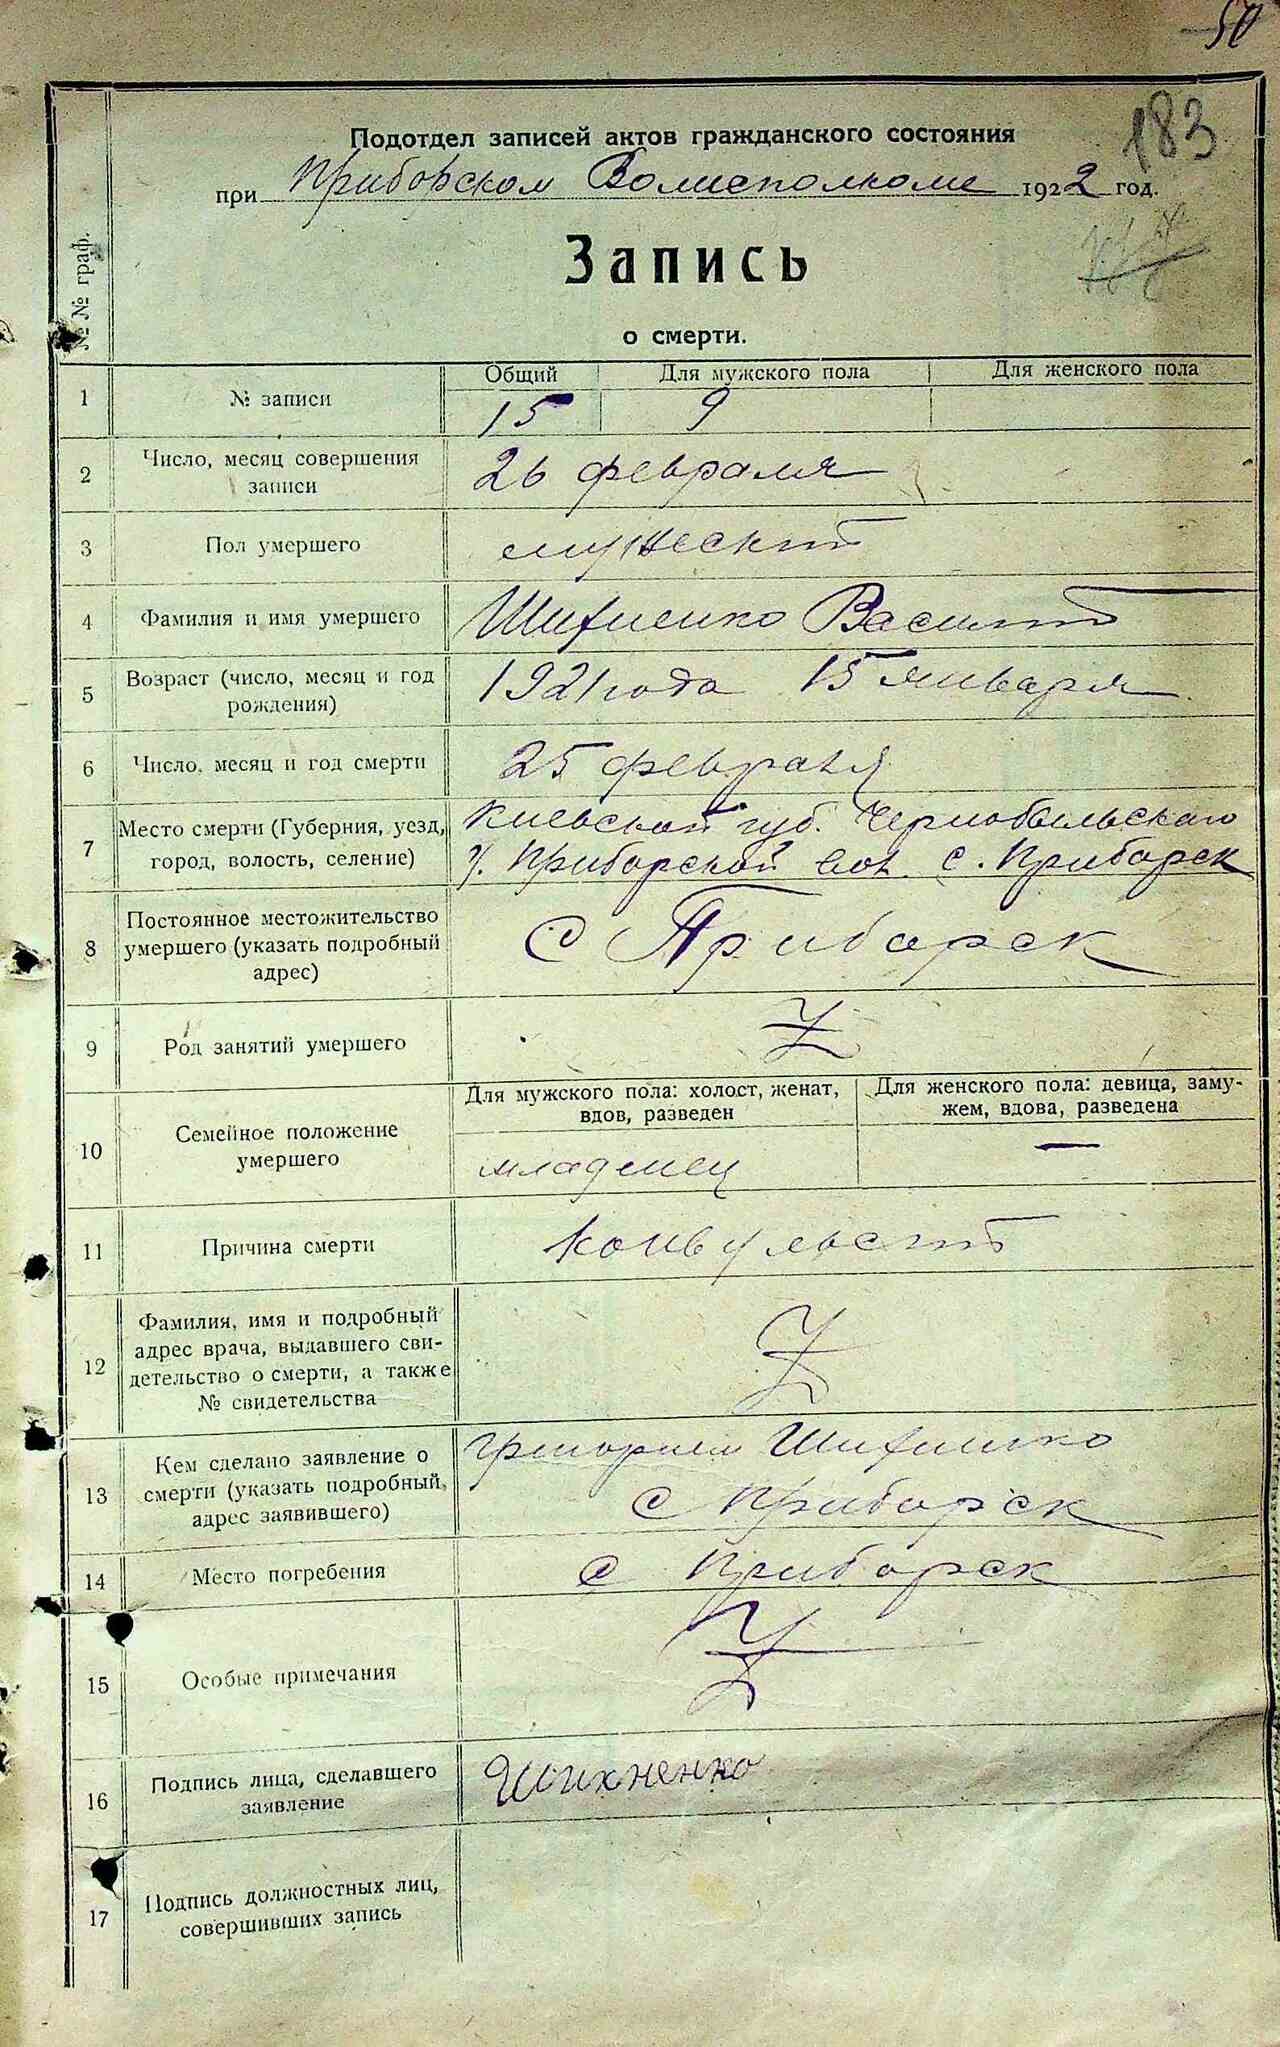 50
183
Подотдел записей актов гражданского состояния
при Приборском Волисполкоме 1922 год.
Запись
о смерти.
№ № граф.
Общий Для мужского пола Для женского пола
1 № записи 15 9
2 Число, месяц совершения записи 26 февраля
3 Пол умершего мужеский
4 Фамилия и имя умершего Шихненко Василий
5 Возраст (число, месяц и год рождения) 1921 года 15 января
6 Число, месяц и год смерти 25 февраля
7 Место смерти (Губерния, уезд, Киевской губ. Чернобыльскаго
город, волость, селение) у. Приборской вол. с. Приборск
8 Постоянное местожительство умершего (указать подробный адрес) с Приборск
9 Род занятий умершего
Для мужского пола: холост, женат, вдов, разведен
Для женского пола: девица, заму-
жем, вдова, разведена
10 Семейное положение умершего младенец —
11 Причина смерти конвульсий
12 Фамилия, имя и подробный
адрес врача, выдавшего сви-
детельство о смерти, а также
№ свидетельства
13 Кем сделано заявление о смерти (указать подробный адрес заявившего) Григорием Шихненко
с Приборск
14 Место погребения с Приборск
15 Особые примечания
16 Подпись лица, сделавшего заявление Шихненко
17 Подпись должностных лиц,
совершивших запись